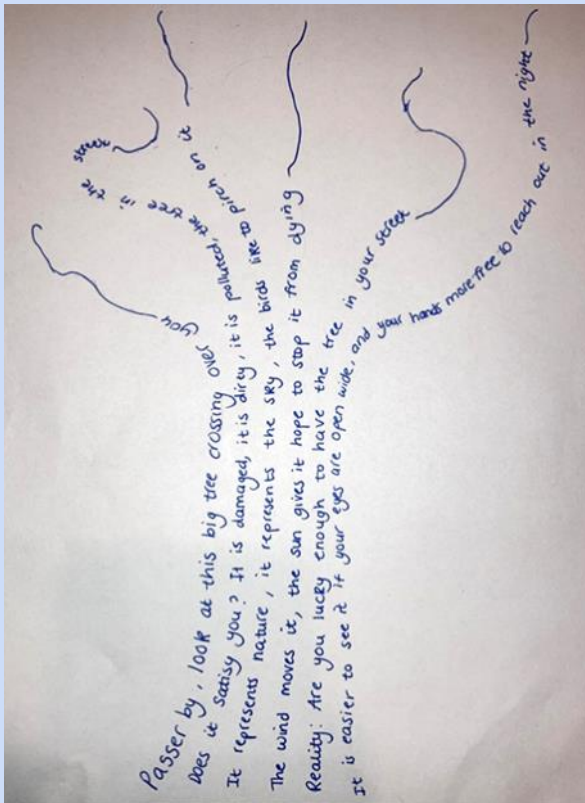 Passer by, look at this big tree crossing over you
Does it Satisy you? It is damaged, it is dirty, it is polluted, the tree in the street
It represents nature, it represents the sky, the birds like to pirch on it
The wind moves it, the sun gives it hope to stop it from dying
Reality: Are you lucky enough to have the tree in your street
It is easier to see it if your eyes are open wide, and your hands more free to reach out in the night